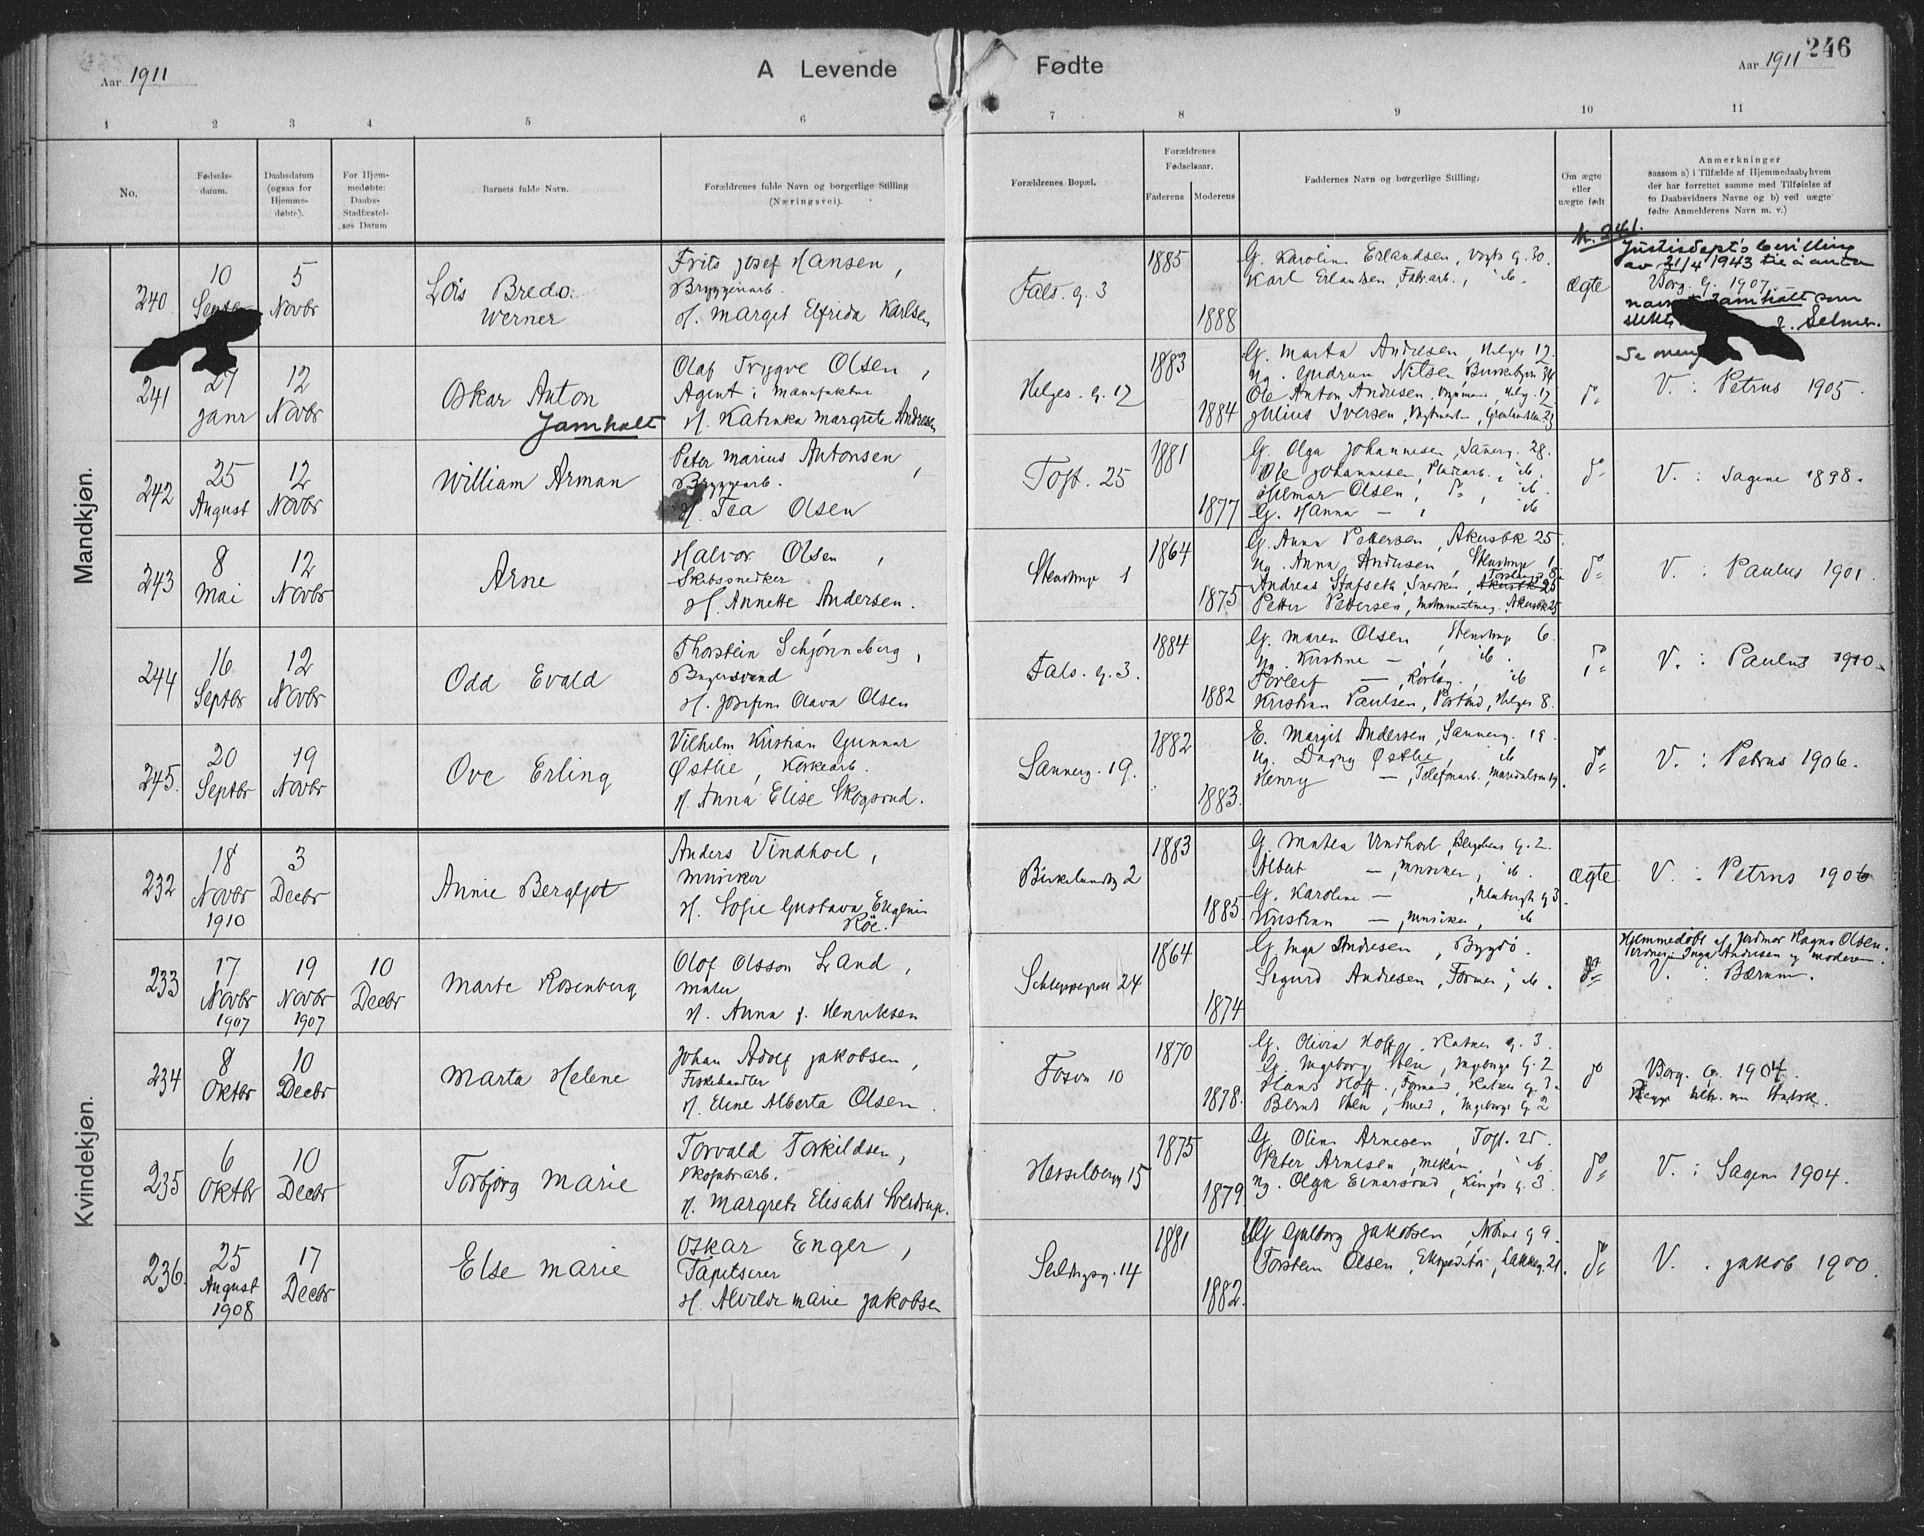 Aar 1911
A Levende Fødte
Aar 1911
246
1 2 3 4 5 6 7 8 9 10 11
No.
Fødsels-
datum.
Daabsdatum
(ogsaa for
Hjemme-
døbte).
For Hjem-
medøbte:
Daabs-
Stadfæstel-
ses Datum
Barnets fulde Navn.
Forældrenes fulde Navn og borgerlige Stilling
(Næringsvei).
Forældrenes Bopæl.
Forældrenes
Fødselsaar.
Faderens
Moderens
Faddernes Navn og borgerlige Stilling.
Om ægte
eller
uægte født
Anmerkninger
saasom a) i Tilfælde af Hjemmedaab, hvem
der har forrettet samme med Tilføielse af
to Daabsvidners Navne og b) ved uægte
fødte Anmelderens Navn m. v.)
Mandkjøn.
240
10
5
Novbr
Bredo
Werner
Frits Josef Hansen,
Bryggeriarb.
H. Margit Elfrida Karlsen
Fals. g. 3
1885
1888
G. Karoline Erlandsen, Vogts g. 30.
Karl Erlandsen, Fabrarb., ib.
ægte
N. 241.
Justisdept's bevilling
av 21/4 1943 til å anta
Borg. g. 1907.
navnet Jamholt som
Selmer.
241
27
Janr
12
Novbr
Oskar Anton
Jamholt
Olaf Trygve Olsen,
Agent i Manufaktur
H. Katinka Margrete Andresen
Helges. g. 12
1883
1884
G. Marta Andresen, Helges 12.
Ug. Gudrun Nilsen
Ole Anton Andresen,
Julius Iversen,
do
V. : Petrus 1905.
242
25
August
12
Novbr
William Arman
Peter Marius Antonsen,
Bryggearb.
H. Tea Olsen
Toft. 25
1881
1877
G. Olga Johannesen, Sannerg. 28.
Ole Johannesen, Pladearb., ib.
Hilmar Olsen, do, ib.
G. Hanna —, ib
do
V. : Sagene 1898.
243
8
Mai
12
Novbr
Arne
Halvor Olsen,
Skibssnedker
H. Annette Andersen.
Stenstrup 1
1864
1875
G. Anna Pettersen, Akersbk 25.
Ug. Anna Andresen, Stenstrup 1
Andreas Stafseth, Snedker,
Petter Pettersen, Akersbk 25
do
V. : Paulus 1901.
244
16
Septbr
12
Novbr
Odd Evald
Thorstein Schjønneberg,
H. Josefine Olava Olsen
Fals. g. 3.
1884
1882
G. Maren Olsen, Stenstrup 6.
Ug. Kristine —, ib.
Torleif —, ib
Kristian Paulsen, Postbud, Helges 8.
do
V. : Paulus 1910.
245.
20
Septbr
19
Novbr
Ove Erling
Vilhelm Kristian Gunnar
Østlie,
H. Anna Elise Skogsrud.
Sannerg. 19.
1882
1883.
E. Margit Andersen, Sannerg. 19.
Ug. Dagny Østlie, ib
Henry —, Telefonarb.
do
V. : Petrus 1906.
Kvindekjøn.
232
18
Novbr
1910
3
Decbr
Annie Bergljot
Anders Vindhoel,
Musiker
H. Sofie Gustava Eugenie
Røe.
Birkelundg 2
1883
1885
G. Matea Vindhoel, Bergsliens g. 2.
Albert —, Musiker, ib.
G. Karoline —,
Kristian —, Musiker, ib
ægte
V. : Petrus 1906
233
17
Novbr
1907
19
Novbr
1907
10
Decbr
Marte Rosenberg
Olof Olsson Land,
Maler
H. Anna J. Henriksen
Schleppegrell 24
1864
1874
G. Inga Andresen, Bygdø
Sigurd Andresen, Former, ib.
do
Hjemmedøbt af Jordmor Ragna Olsen.
Vidner: Inga Andresen og moderen.
V. : Bærum.
234
8
Oktbr
10
Decbr
Marta Helene
Johan Adolf Jakobsen,
Fiskehandler
H. Eline Alberta Olsen.
Fosvn 10
1870
1878.
G. Olivia Hoff, Ratkes g. 3.
G. Ingeborg Sten, Ingeborgs g. 2
Hans Hoff, Formand, Ratkes g. 3.
Bernt Sten, Smed, Ingeborgs g 2
do
Borg. Gr. 1904.
235
6
Oktbr
10
Decbr
Torbjørg Marie
Torvald Torkildsen,
Skofabrarb.
H. Margrete Elisabet Sverdrup.
Hesselbergg 15
1875
1879
G. Oline Arnesen, Toft. 25.
Peter Arnesen, Mekan., ib.
Ug. Olga Einarsrud, Kingos g. 3.
do
V. : Sagene 1904.
236.
25
August
1908
17
Decbr
Else Marie
Oskar Enger,
Tapetserer
H. Alvilde Marie Jakobsen
Seilduksg. 14
1881
1882.
Ug Gulborg Jakobsen, g 9.
Torstein Olsen, Ekspeditør, Lakkeg. 21.
do
V. . Jakob 1900.